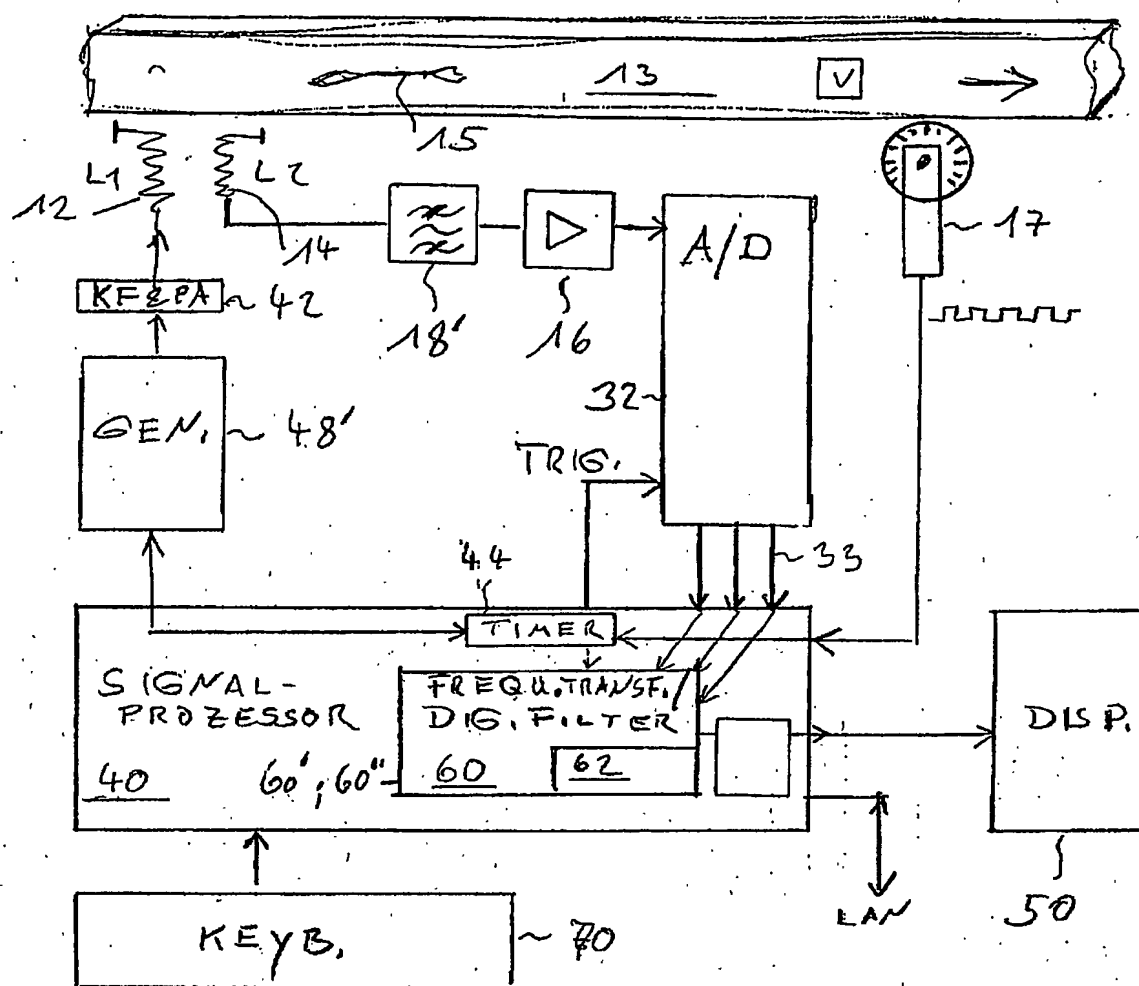 13
V
15
L1
L2
12
14
17
A/D
KF&PA
42
18'
16
32
GEN.
48'
TRIG.
33
44
TIMER
SIGNAL-
PROZESSOR
40
FREQU.TRANSF./
DIG.FILTER
60
62
60'; 60"
DISP.
50
LAN
KEYB.
70